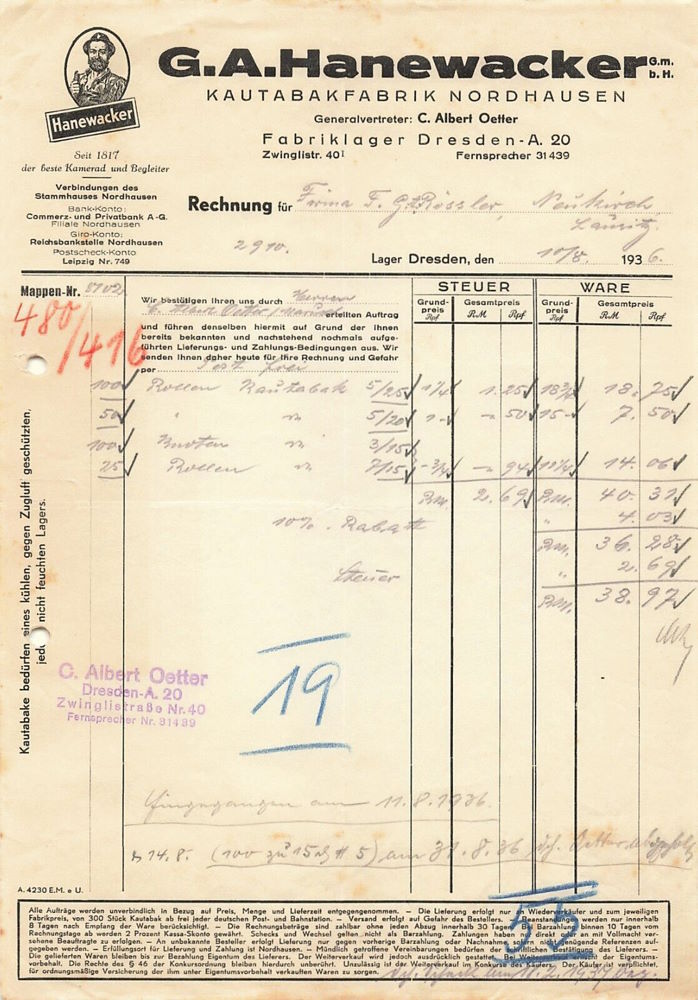 G.A.Hanewacker G.m.b.H.
KAUTABAKFABRIK NORDHAUSEN
Generalvertreter: C. Albert Oetter
Fabriklager Dresden-A. 20
Zwinglistr. 40 I Fernsprecher 31439
Hanewacker
Seit 1817
der beste Kamerad und Begleiter
Verbindungen des
Stammhauses Nordhausen
Bank-Konto:
Commerz- und Privatbank A-G.
Filiale Nordhausen
Giro-Konto:
Reichsbankstelle Nordhausen
Postscheck-Konto
Leipzig Nr. 749
Rechnung für Firma F. G. Rössler, Neukirch
Lausitz
2910.
Lager Dresden, den 10/8. 1936.
Mappen-Nr.
480/416
Wir bestätigen Ihnen uns durch Herren
C. Albert Oetter / erteilten Auftrag
und führen denselben hiermit auf Grund der Ihnen
bereits bekannten und nachstehend nochmals aufge-
führten Lieferungs- und Zahlungs-Bedingungen aus. Wir
senden Ihnen daher heute für Ihre Rechnung und Gefahr
per Post frei
STEUER WARE
Grundpreis Rpf Gesamtpreis RM Rpf Grundpreis Rpf Gesamtpreis RM Rpf
100 Rollen Kautabak 5/25 1 1/4 1. 25 18 3/4 18. 75
50 " " 5/20 1 - - 50 15 - 7. 50
100 Knoten " 3/15
25 Rollen " 7/15 - 3/4 - 94 11 1/4 14. 06
RM. 2. 69 RM. 40. 31
10% Rabatt " 4. 03
RM. 36. 28
Steuer " 2. 69
RM. 38. 97
Kautabake bedürfen eines kühlen, gegen Zugluft geschützten,
jedoch nicht feuchten Lagers.
C. Albert Oetter
Dresden-A. 20
Zwinglistraße Nr. 40
Fernsprecher Nr. 31439
19
Eingegangen am 11.8.1936.
14.8. (100 zu 15 ) am 31.8.36 Oetter
A. 4230 E.M. e U.
55
Alle Aufträge werden unverbindlich in Bezug auf Preis, Menge und Lieferzeit entgegengenommen. — Die Lieferung erfolgt nur an Wiederverkäufer und zum jeweiligen
Fabrikpreis, von 300 Stück Kautabak ab frei jeder deutschen Post- und Bahnstation. — Versand erfolgt auf Gefahr des Bestellers. — Beanstandungen werden nur innerhalb
8 Tagen nach Empfang der Ware berücksichtigt. — Die Rechnungsbeträge sind zahlbar ohne jeden Abzug innerhalb 30 Tagen. Bei Barzahlung binnen 10 Tagen vom
Rechnungstage ab werden 2 Prozent Kassa-Skonto gewährt. Schecks und Wechsel gelten nicht als Barzahlung. Zahlungen haben nur direkt oder an mit Vollmacht ver-
sehene Beauftragte zu erfolgen. — An unbekannte Besteller erfolgt Lieferung nur gegen vorherige Bezahlung oder Nachnahme, genügende Referenzen auf-
gegeben werden. — Erfüllungsort für Lieferung und Zahlung ist Nordhausen. — Mündlich getroffene Vereinbarungen bedürfen der schriftlichen Bestätigung des Lieferers. —
Die gelieferten Waren bleiben bis zur Bezahlung Eigentum des Lieferers. Der Weiterverkauf wird jedoch ausdrücklich gestattet. Bei Weiterverkauf Eigentums-
vorbehalt. Die Rechte des § 46 der Konkursordnung bleiben hierdurch unberührt. Unzulässig ist der Weiterverkauf im Konkurse des Käufers. Der Käufer ist verpflichtet,
für ordnungsmäßige Versicherung der ihm unter Eigentumsvorbehalt verkauften Waren zu sorgen.